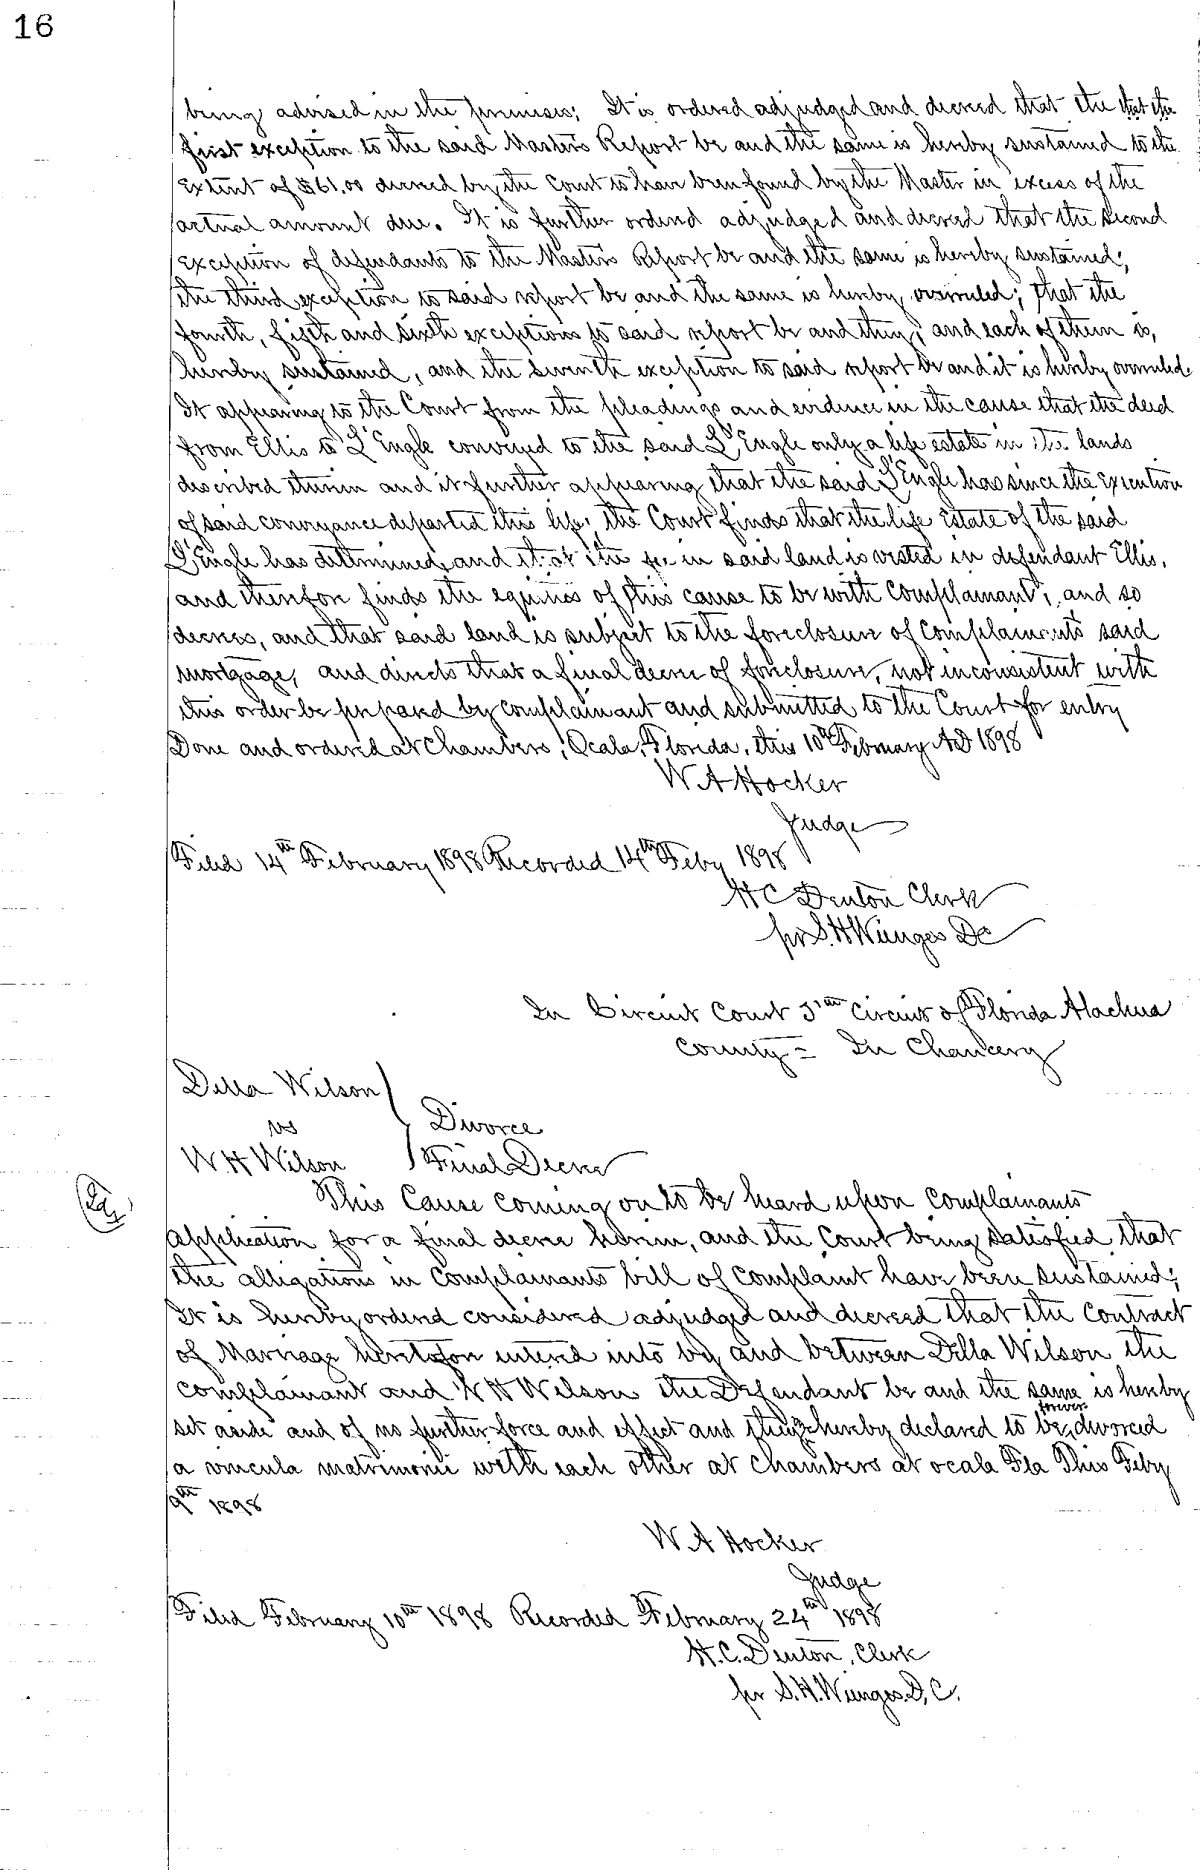 16
being advised in the premises; It is ordered adjudged and decreed that the that the
first exception to the said Masters Report be and the same is hereby sustained to the
Extent of $61.00 decreed by the Court to have been found by the Master in excess of the
actual amount due. It is further ordered adjudged and decreed that the second
exception of defendants to the Masters Report be and the same is hereby sustained;
the third exception to said report be and the same is hereby overruled; that the
fourth, fifth and sixth exceptions to said report be and they, and each of them is,
hereby sustained, and the seventh exception to said report be and it is hereby overruled.
It appearing to the Court from the pleadings and evidence in the cause that the deed
from Ellis to L'Engle conveyed to the said L'Engle only a life estate in the lands
described therein and it further appearing that the said L'Engle has since the Execution
of said conveyance departed this life; the Court finds that the life Estate of the said
L'Engle has determined, and that the fee in said land is vested in defendant Ellis,
and therefore finds the equities of this cause to be with Complainant, and so
decrees, and that said land is subject to the foreclosure of Complainants said
mortgage, and directs that a final decree of foreclosure, not inconsistent with
this order be prepared by complainant and submitted to the Court for entry
Done and ordered at Chambers, Ocala, Florida, this 10th February AD 1898
W A Hocker
Judge
Filed 14th February 1898 Recorded 14th Feby 1898
H C Denton Clerk
pr S. H Wienges DC
In Circuit Court 5th Circuit of Florida Alachua
County = In Chancery
Della Wilson
vs Divorce
W. H Wilson Final Decree
This Cause coming on to be heard upon Complainants
application for a final decree herein, and the Court being satisfied that
the alligations in Complainants bill of Complaint have been sustained;
It is hereby ordered considered adjudged and decreed that the Contract
of Marriage heretofore entered into by and between Della Wilson the
complainant and W H Wilson the Defendant be and the same is hereby
set aside and of no further force and effect and they hereby declared to be forever divorced
a vincula matrimonii with each other at Chambers at ocala Fla This Feby
9th 1898
W. A Hocker
Judge
Filed February 10th 1898 Recorded February 24th 1898
H. C. Denton, Clerk
pr S. H. Wienges D, C.